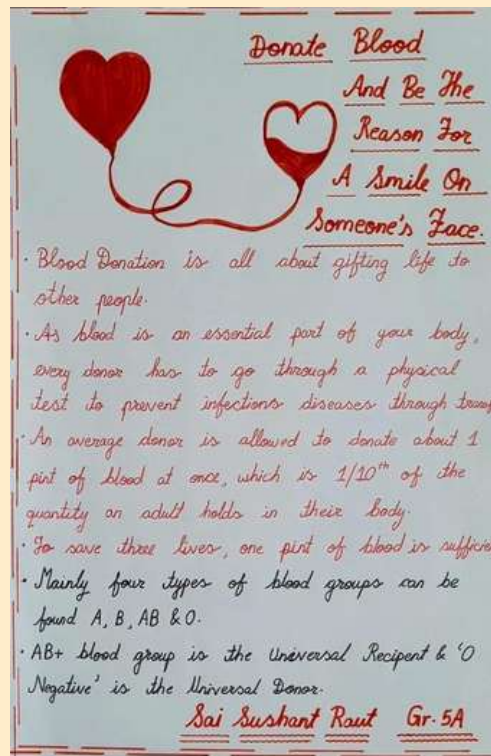 Donate Blood
And Be The
Reason For
A Smile On
Someone's Face.
· Blood Donation is all about gifting life to
other people.
· As blood is an essential part of your body,
every donor has to go through a physical
test to prevent infections diseases through
· An average donor is allowed to donate about 1
pint of blood at once, which is 1/10th of the
quantity an adult holds in their body.
· To save three lives, one pint of blood is
· Mainly four types of blood groups can be
found A, B, AB & O.
· AB+ blood group is the Universal Recipent & 'O
Negative' is the Universal Donor.
Sai Sushant Raut Gr. 5A